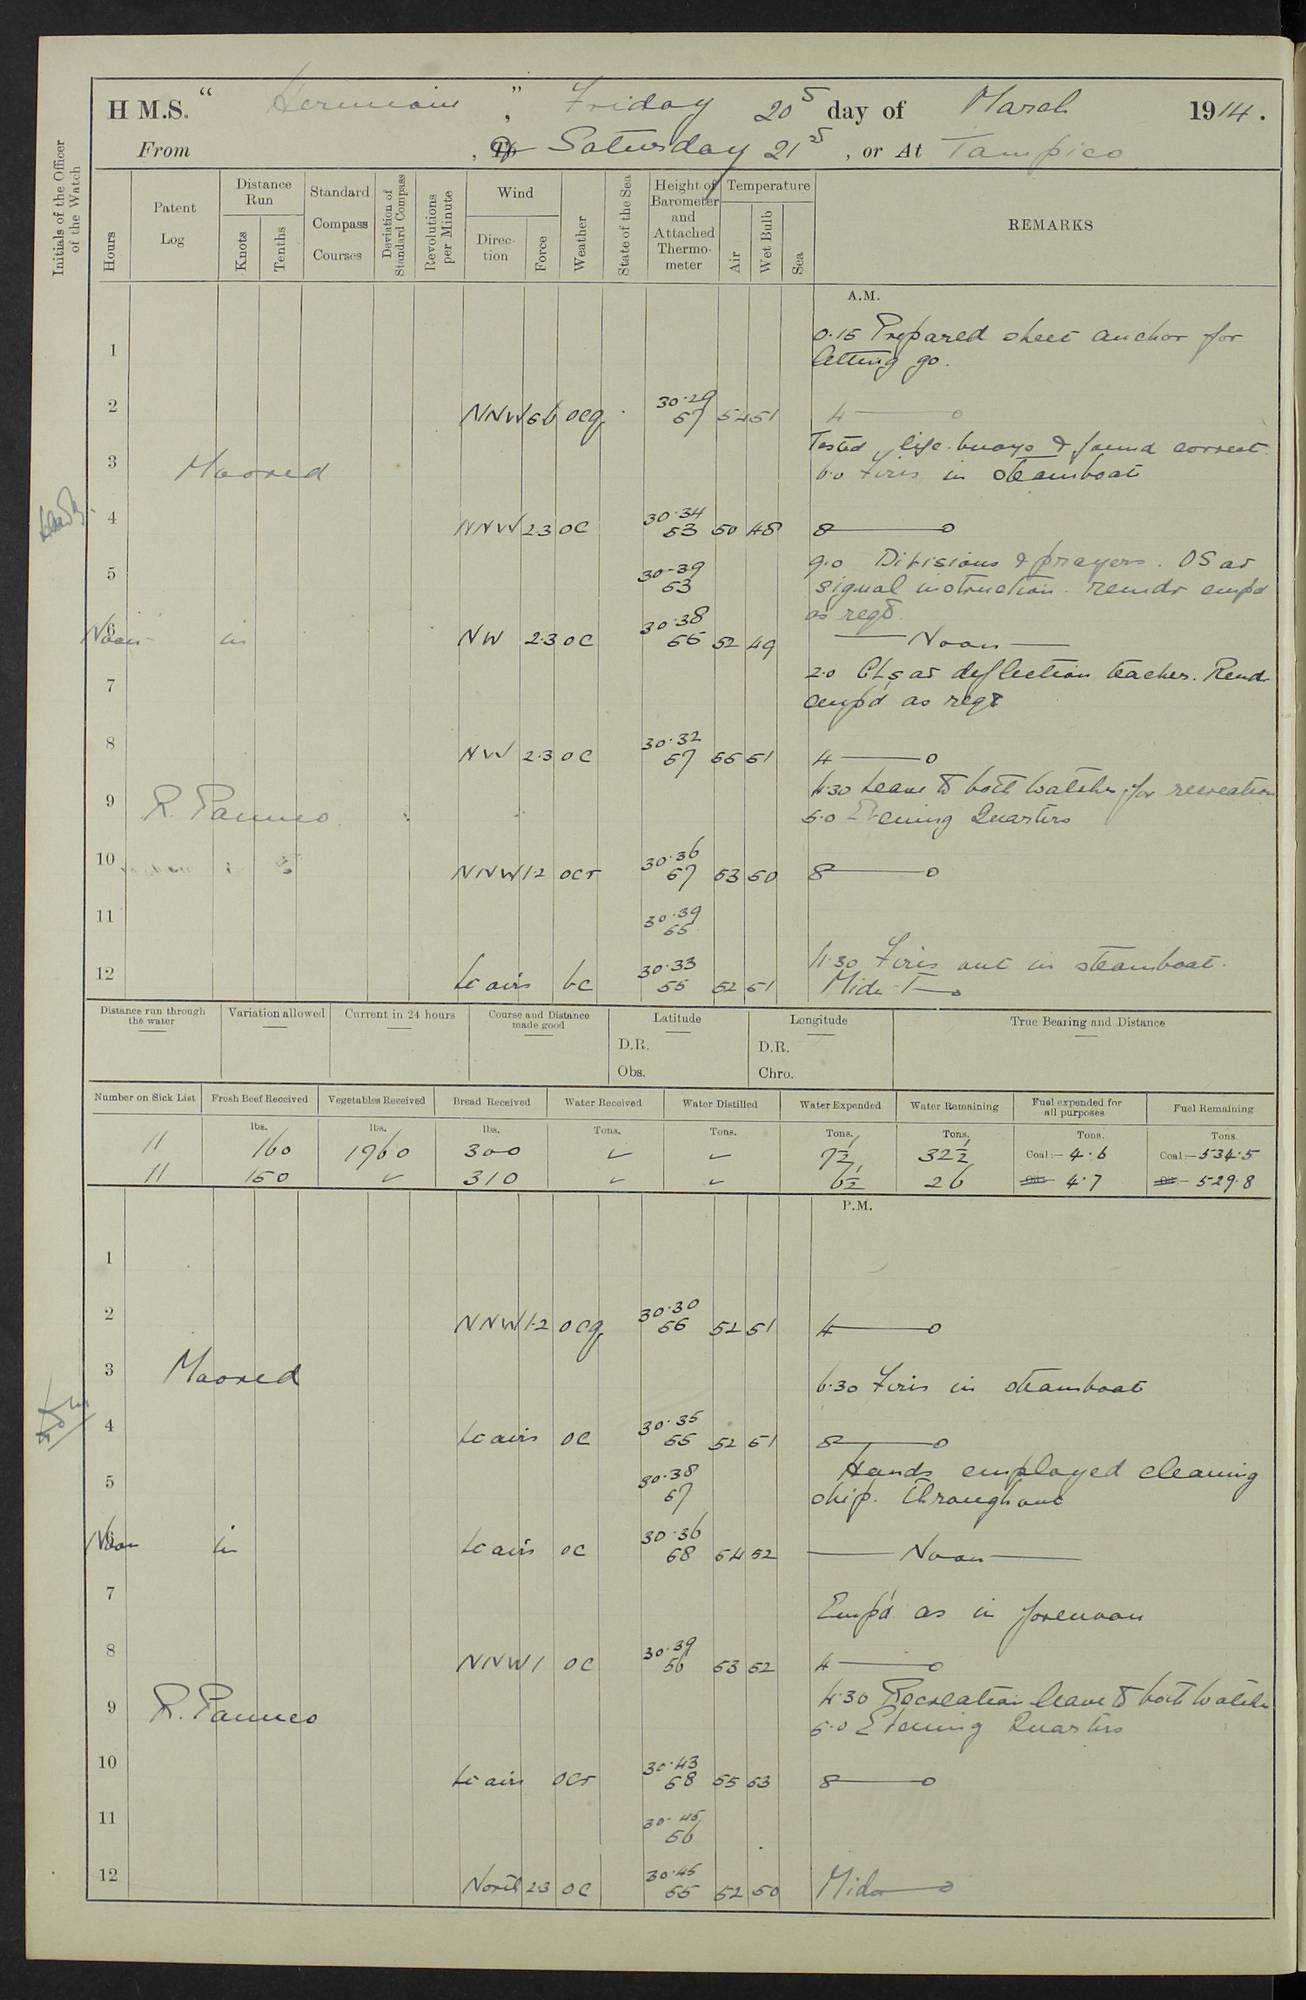 H M.S. " Hermione , " Friday 20th day of March 1914.
From , To Saturday 21st , or At Tampico
Initials of the Officer of the Watch
Hours
Patent Log
Distance Run
Knots
Tenths
Standard Compass Courses
Deviation of Standard Compass
Revolutions per Minute
Wind
Direc-tion
Force
Weather
State of the Sea
Height of Barometer and Attached Thermo-meter
Temperature
Air
Wet Bulb
Sea
REMARKS
A.M.
0.15 Prepared sheet anchor for
1
letting go.
2 NNW 5.6 ocq 30.29 57 54 51 4
Tested life buoys & found correct.
3 Moored 6.0 Fires in steamboat
4 NNW 2.3 oc 30.34 53 50 48 8
5 30.39 53 9.0 Divisions & prayers. OS at
signal instruction. remdr emp'd
as reqd.
6 Noon in NW 2.3 oc 30.38 55 52 49 Noon
2.0 GLs at deflection teacher. Remdr
7 emp'd as reqd
8 NW 2.3 oc 30.32 57 55 51 4
4.30 Leave to both watches for recreation
9 R. Panuco 5.0 Evening Quarters
10 NNW 1.2 ocr 30.36 57 53 50 8
11 30.39 55
11.30 Fires out in steamboat.
12 Lt airs bc 30.33 55 52 51 Midt
Distance run through the water
Variation allowed
Current in 24 hours
Course and Distance made good
Latitude
D.R.
Obs.
Longitude
D.R.
Chro.
True Bearing and Distance
Number on Sick List Fresh Beef Received Vegetables Received Bread Received Water Received Water Distilled Water Expended Water Remaining Fuel expended for all purposes Fuel Remaining
lbs. lbs. lbs. Tons. Tons. Tons. Tons. Tons. Tons.
11 160 1960 300 ✓ ✓ 7½ 32½ Coal:- 4.6 Coal:- 534.5
11 150 ✓ 310 ✓ ✓ 6½ 26 Oil:- 4.7 Oil:- 529.8
P.M.
1
2 NNW 1.2 ocq 30.30 56 52 51 4
3 Moored 6.30 Fires in steamboat
4 Lt airs oc 30.35 55 52 51 8
Hands employed cleaning
5 30.38 57 ship. throughout
6 Noon in Lt airs oc 30.36 58 54 52 Noon
7 Emp'd as in forenoon
8 NNW 1 oc 30.39 56 53 52 4
4.30 Recreation leave to both watches
9 R. Panuco 5.0 Evening Quarters
10 Lt airs ocr 30.43 58 55 53 8
11 30.45 56
12 North 2.3 oc 30.45 55 52 50 Midt